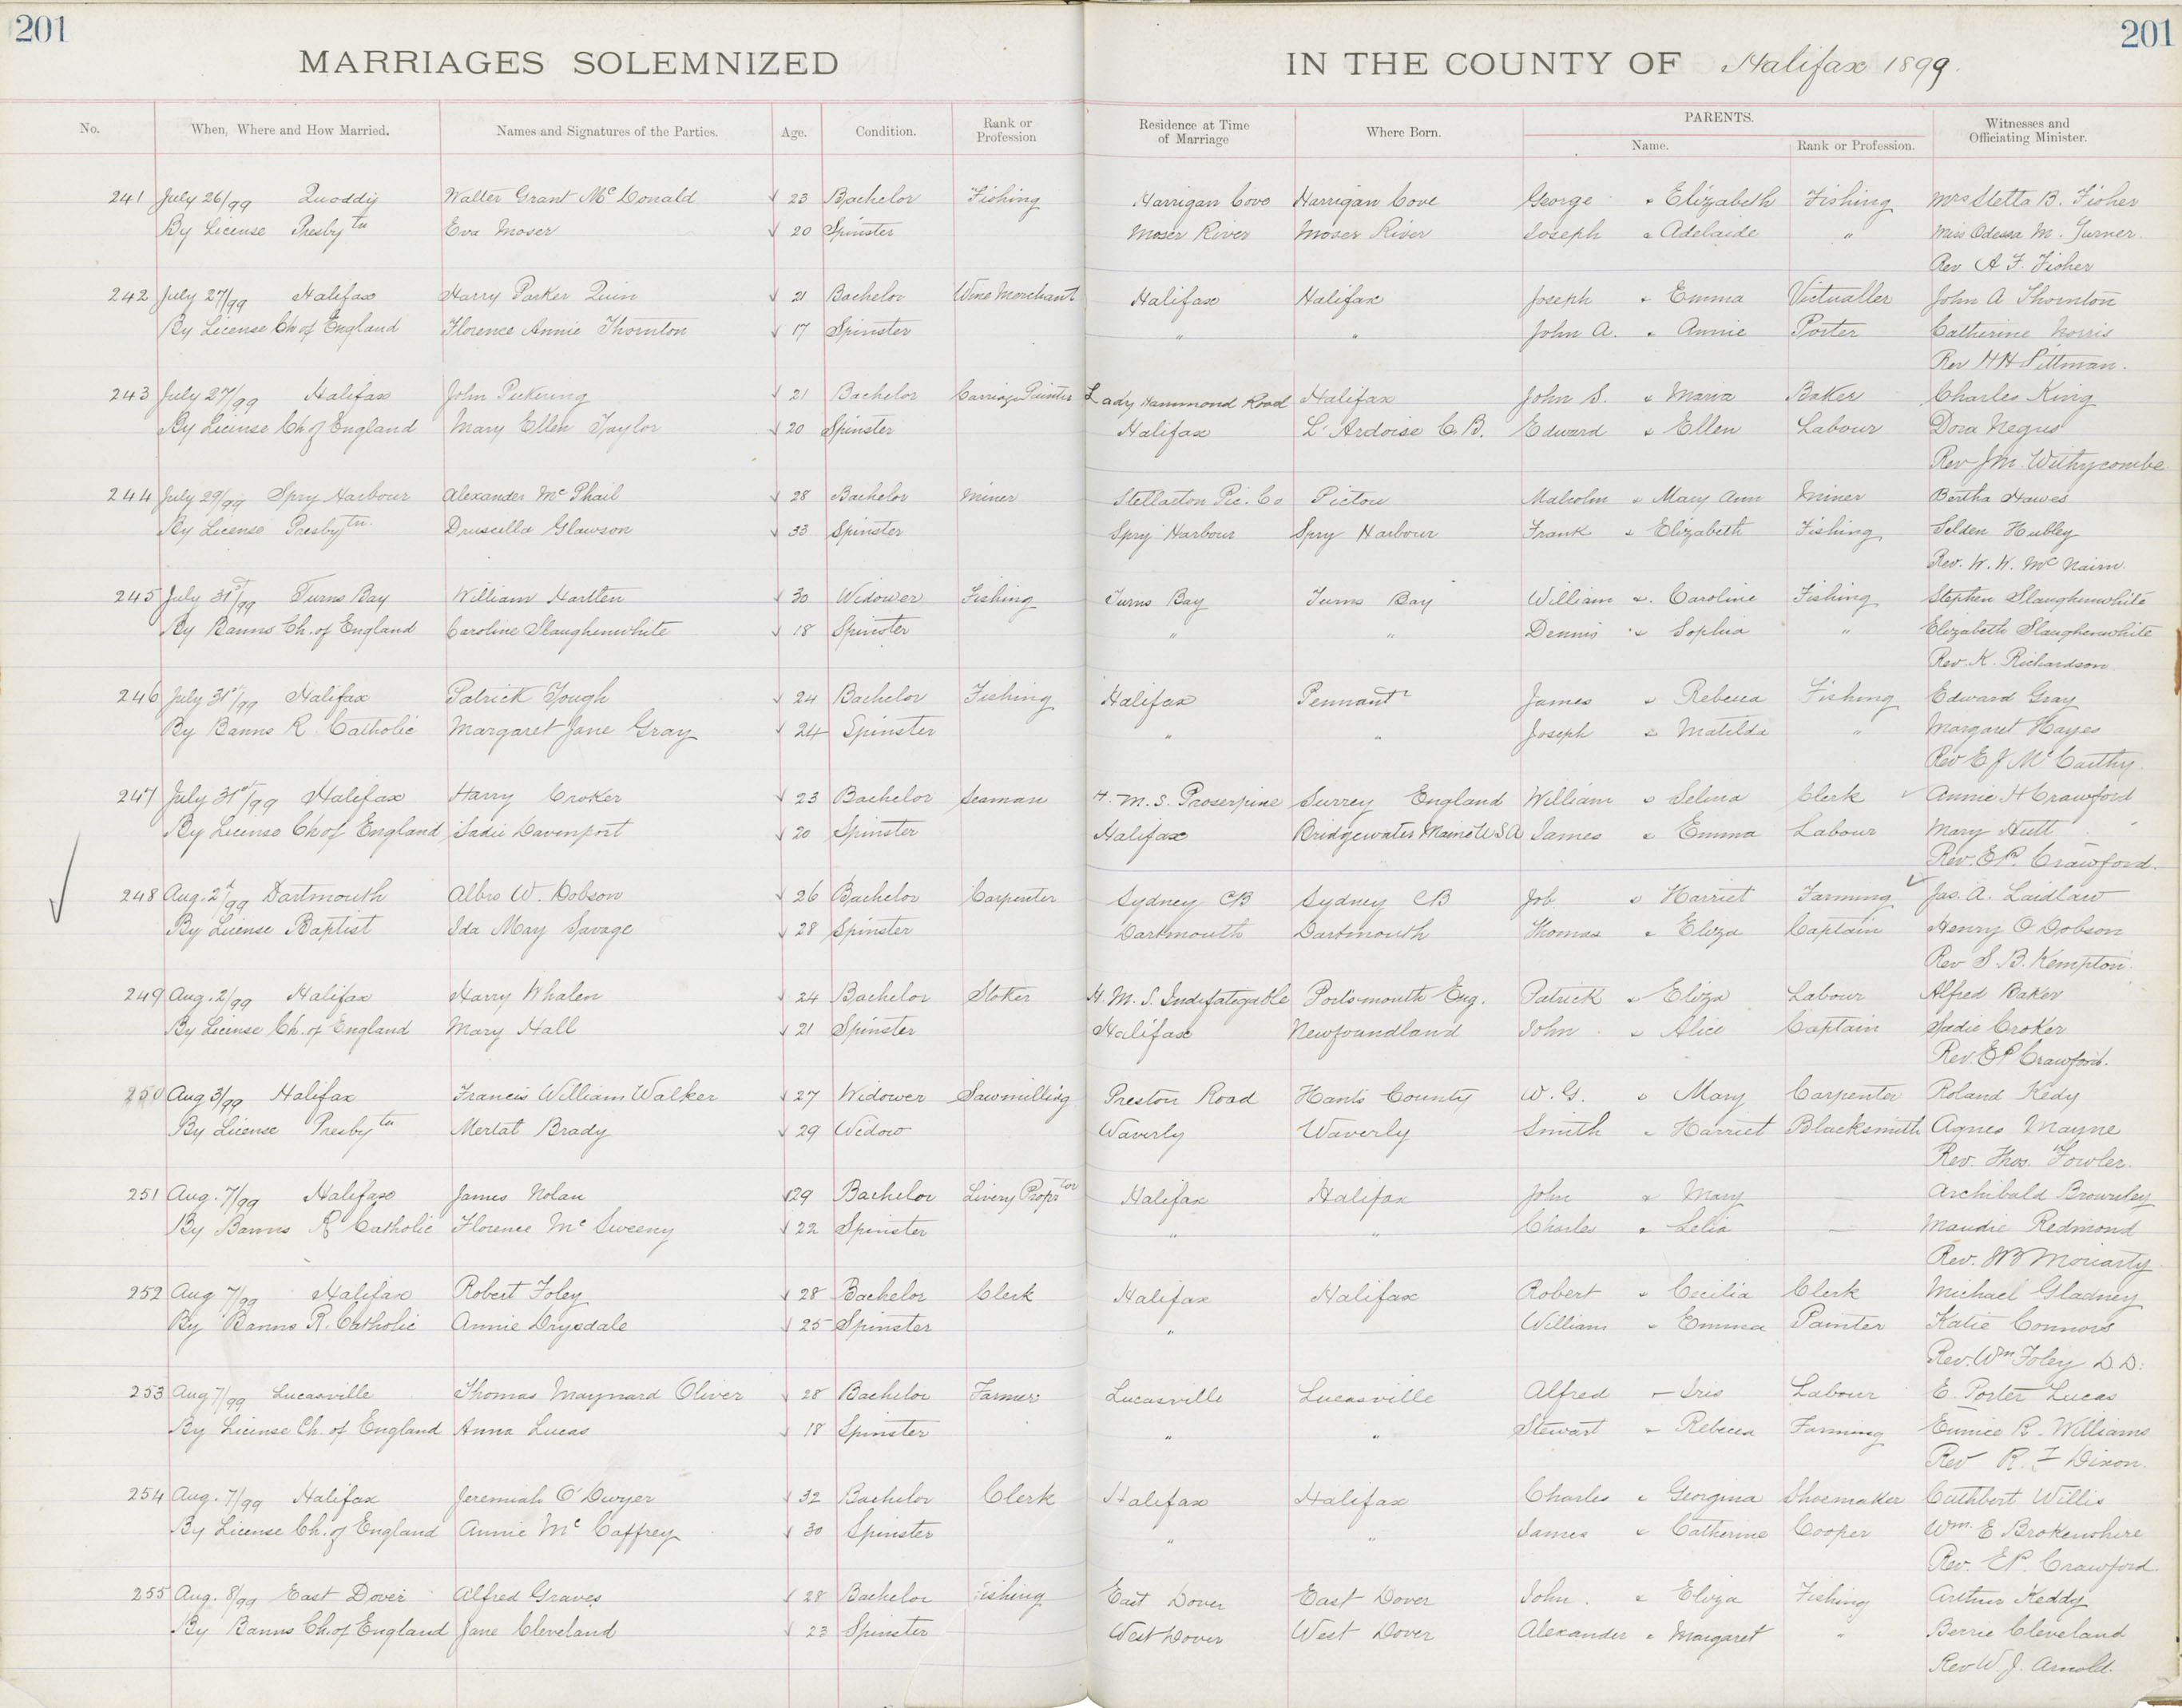 201 201
MARRIAGES SOLEMNIZED IN THE COUNTY OF Halifax 1899.
No. When, Where and How Married. Names and Signatures of the Parties. Age. Condition. Rank or Profession Residence at Time of Marriage Where Born. PARENTS. Name. Rank or Profession. Witnesses and Officiating Minister.
241 July 26/99 Quoddy Walter Grant Mc Donald √ 23 Bachelor Fishing Harrigan Cove Harrigan Cove George & Elizabeth Fishing Mrs Stetta B. Fisher
By License Presby tn Eva Moser √ 20 Spinster Moser River Moser River Joseph & Adelaide " Miss Odessa M. Turner
Rev A. F. Fisher
242 July 27/99 Halifax Harry Parker Quin √ 21 Bachelor Wine Merchant Halifax Halifax Joseph & Emma Victualler John A Thornton
By License Ch of England Florence Annie Thornton √ 17 Spinster " " John A. & Annie Porter Catherine Norris
Rev H H Pittman.
243 July 27/99 Halifax John Pickering √ 21 Bachelor Carriage Painter Lady Hammond Road Halifax John S. & Maria Baker Charles King
By License Ch of England Mary Ellen Taylor √ 20 Spinster Halifax L'Ardoise C. B. Edward & Ellen Labour Dora Negus
Rev J M. Withycombe
244 July 29/99 Spry Harbour Alexander Mc Phail √ 28 Bachelor Miner Stellarton Pic. Co Pictou Malcolm & Mary Ann Miner Bertha Hawes
By License Presby tn. Druscilla Glawson √ 33 Spinster Spry Harbour Spry Harbour Frank & Elizabeth Fishing Selden Hubley
Rev. W. W. Mc Nairn.
245 July 31st/99 Turns Bay William Harlten √ 30 Widower Fishing Turns Bay Turns Bay William &. Caroline Fishing Stephen Slaughenwhite
By Banns Ch. of England Caroline Slaughenwhite √ 18 Spinster " " Dennis & Sophia " Elizabeth Slaughenwhite
Rev. K. Richardson.
246 July 31st/99 Halifax Patrick Tough √ 24 Bachelor Fishing Halifax Pennant James & Rebecca Fishing Edward Gray
By Banns R. Catholic Margaret Jane Gray √ 24 Spinster " " Joseph & Matilda " Margaret Hayes
Rev E J Mc Carthy.
247 July 31st/99 Halifax Harry Croker √ 23 Bachelor Seaman H. M. S. Proserpine Surrey England William & Selina Clerk √ Annie H Crawford
By License Ch of England Sadie Davenport √ 20 Spinster Halifax Bridgewater Maine U S A James & Emma Labour Mary Hutt "
Rev. E P. Crawford.
√ 248 Aug. 2d/99 Dartmouth Albro W. Dobson √ 26 Bachelor Carpenter Sydney CB Sydney CB Job & Harriet Farming √ Jas. A. Laidlaw
By License Baptist Ida May Savage √ 28 Spinster Dartmouth Dartmouth Thomas & Eliza Captain Henry O Dobson
Rev S. B. Kempton.
249 Aug. 2/99 Halifax Harry Whalen √ 24 Bachelor Stoker H. M. S. Indefatigable Portsmouth Eng. Patrick & Eliza Labour Alfred Baker
By License Ch. of England Mary Hall √ 21 Spinster Halifax Newfoundland John & Alice Captain Sadie Croker
Rev. E P Crawford.
250 Aug 3/99 Halifax Francis William Walker √ 27 Widower Sawmilling Preston Road Hants County W. G. & Mary Carpenter Roland Kedy
By License Presby tn Mertat Brady √ 29 Widow Waverly Waverly Smith & Harriet Blacksmith Agnes Mayne
Rev. Thos. Fowler.
251 Aug. 7/99 Halifax James Nolan √ 29 Bachelor Livery Proprtor Halifax Halifax John & Mary — Archibald Brownley
By Banns R Catholic Florence Mc Sweeny √ 22 Spinster " " Charles & Lelia — Maudie Redmond
Rev. W B Moriarty
252 Aug 7/99 Halifax Robert Foley √ 28 Bachelor Clerk Halifax Halifax Robert & Cecilia Clerk Michael Gladney
By Banns R. Catholic Annie Drysdale √ 25 Spinster " William & Emma Painter Katie Connors
Rev. Wm Foley D. D.
253 Aug 7/99 Lucasville Thomas Maynard Oliver √ 28 Bachelor Farmer Lucasville Lucasville Alfred — Iris Labour E. Porter Lucas
By License Ch. of England Anna Lucas √ 18 Spinster " " Stewart & Rebecca Farming Eunice R. Williams
Rev R. F Dixon.
254 Aug. 7/99 Halifax Jeremiah O'Dwyer √ 32 Bachelor Clerk Halifax Halifax Charles & Georgina Shoemaker Cuthbert Willis
By License Ch. of England Annie Mc Caffrey √ 30 Spinster " " James & Catherine Cooper Wm. E Brokenshire
Rev. E P. Crawford.
255 Aug. 8/99 East Dover Alfred Graves √ 28 Bachelor Fishing East Dover East Dover John. & Eliza Fishing Arthur Keddy
By Banns Ch. of England Jane Cleveland √ 23 Spinster West Dover West Dover Alexander & Margaret " Berrie Cleveland
Rev W. J. Arnold.